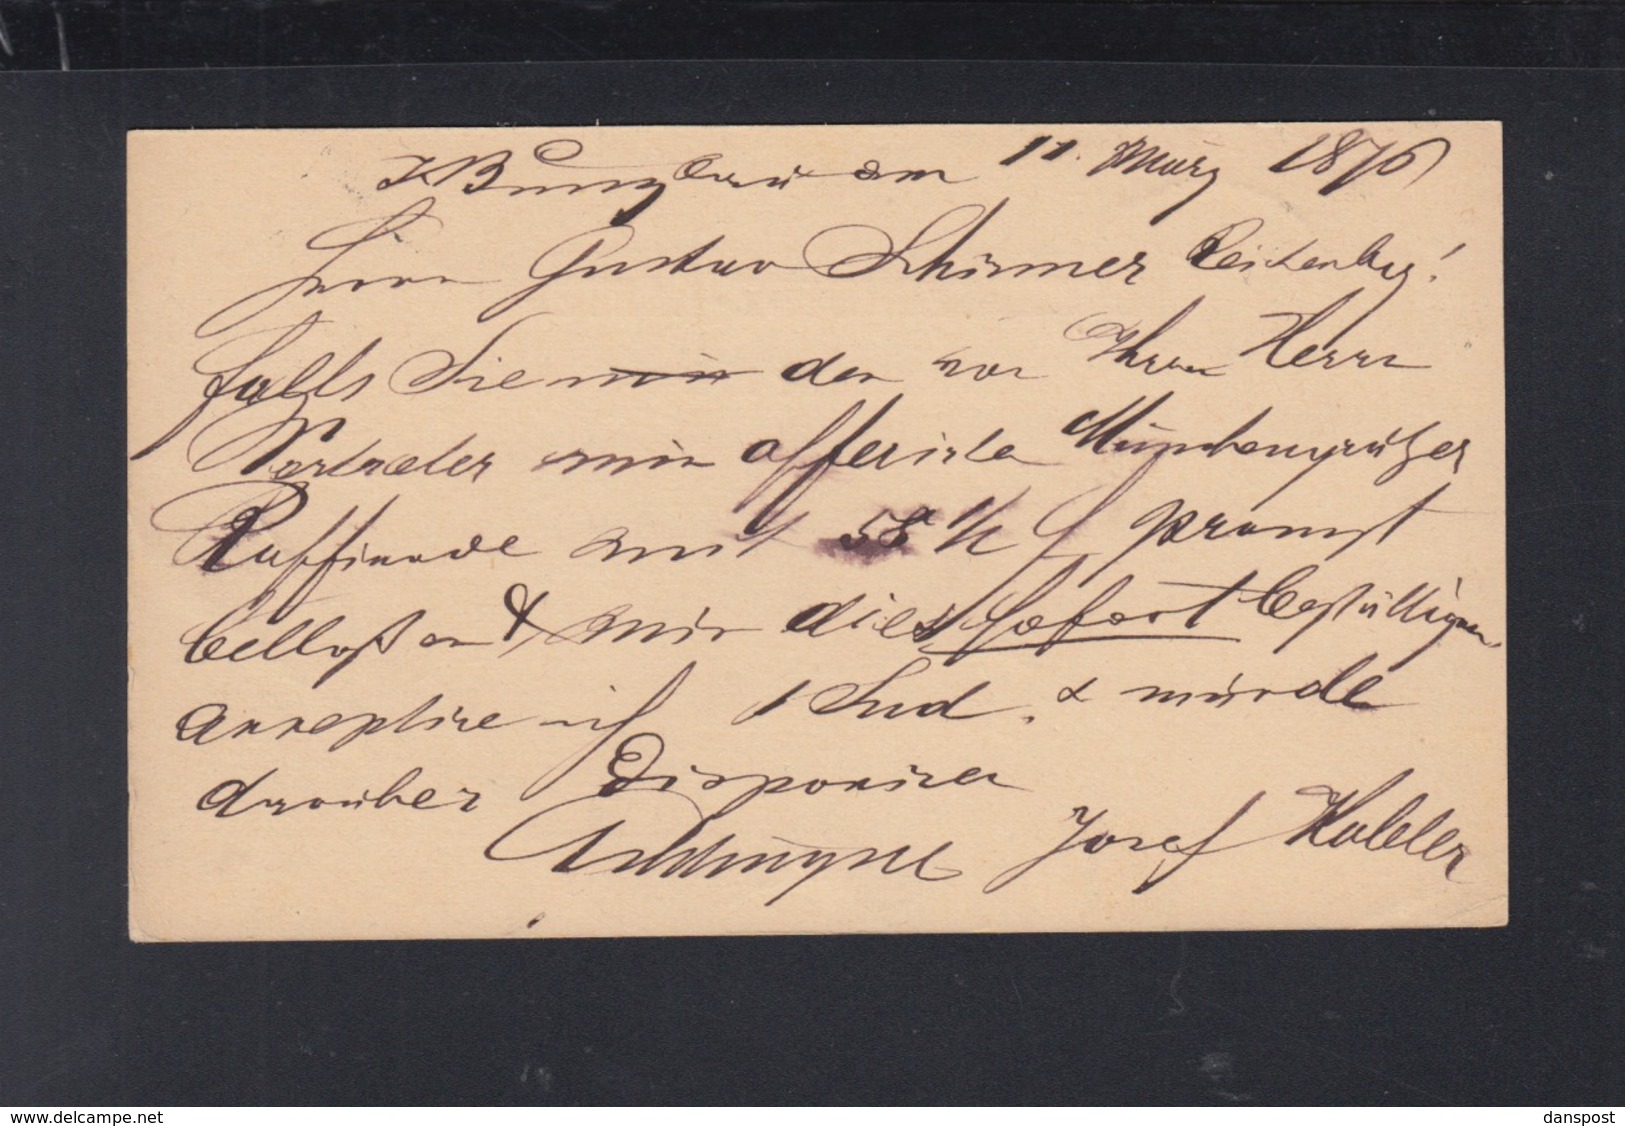 J Bunzlau am 11. März 1876
Herrn Gustav Schirmer Reichenberg!
falls Sie mir den von Ihren Herrn
Vertreter mir offerirten Münchengrätzer
Raffinade mit 58 1/2 f prompt
& mir dies sofort bestättigen
acceptire ich 1 Sud. & würde
darüber Disponiren
Achtungsvoll Josef
www.delcampe.net
danspost